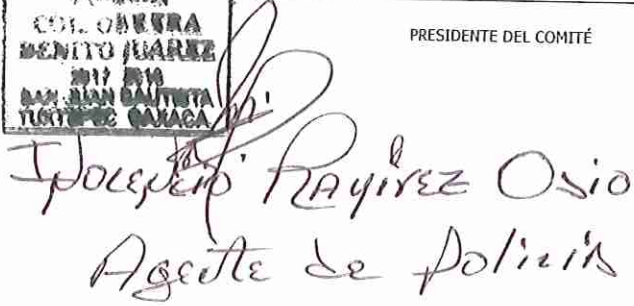 COL. OBRERA
BENITO JUAREZ
2017 2018
SAN JUAN BAUTISTA
TUXTEPEC OAXACA
PRESIDENTE DEL COMITÉ
Inocencio Ramírez Osio
Agente de Policia